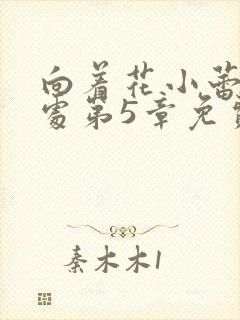 向着花小蕾
处第5章免费
秦木木1